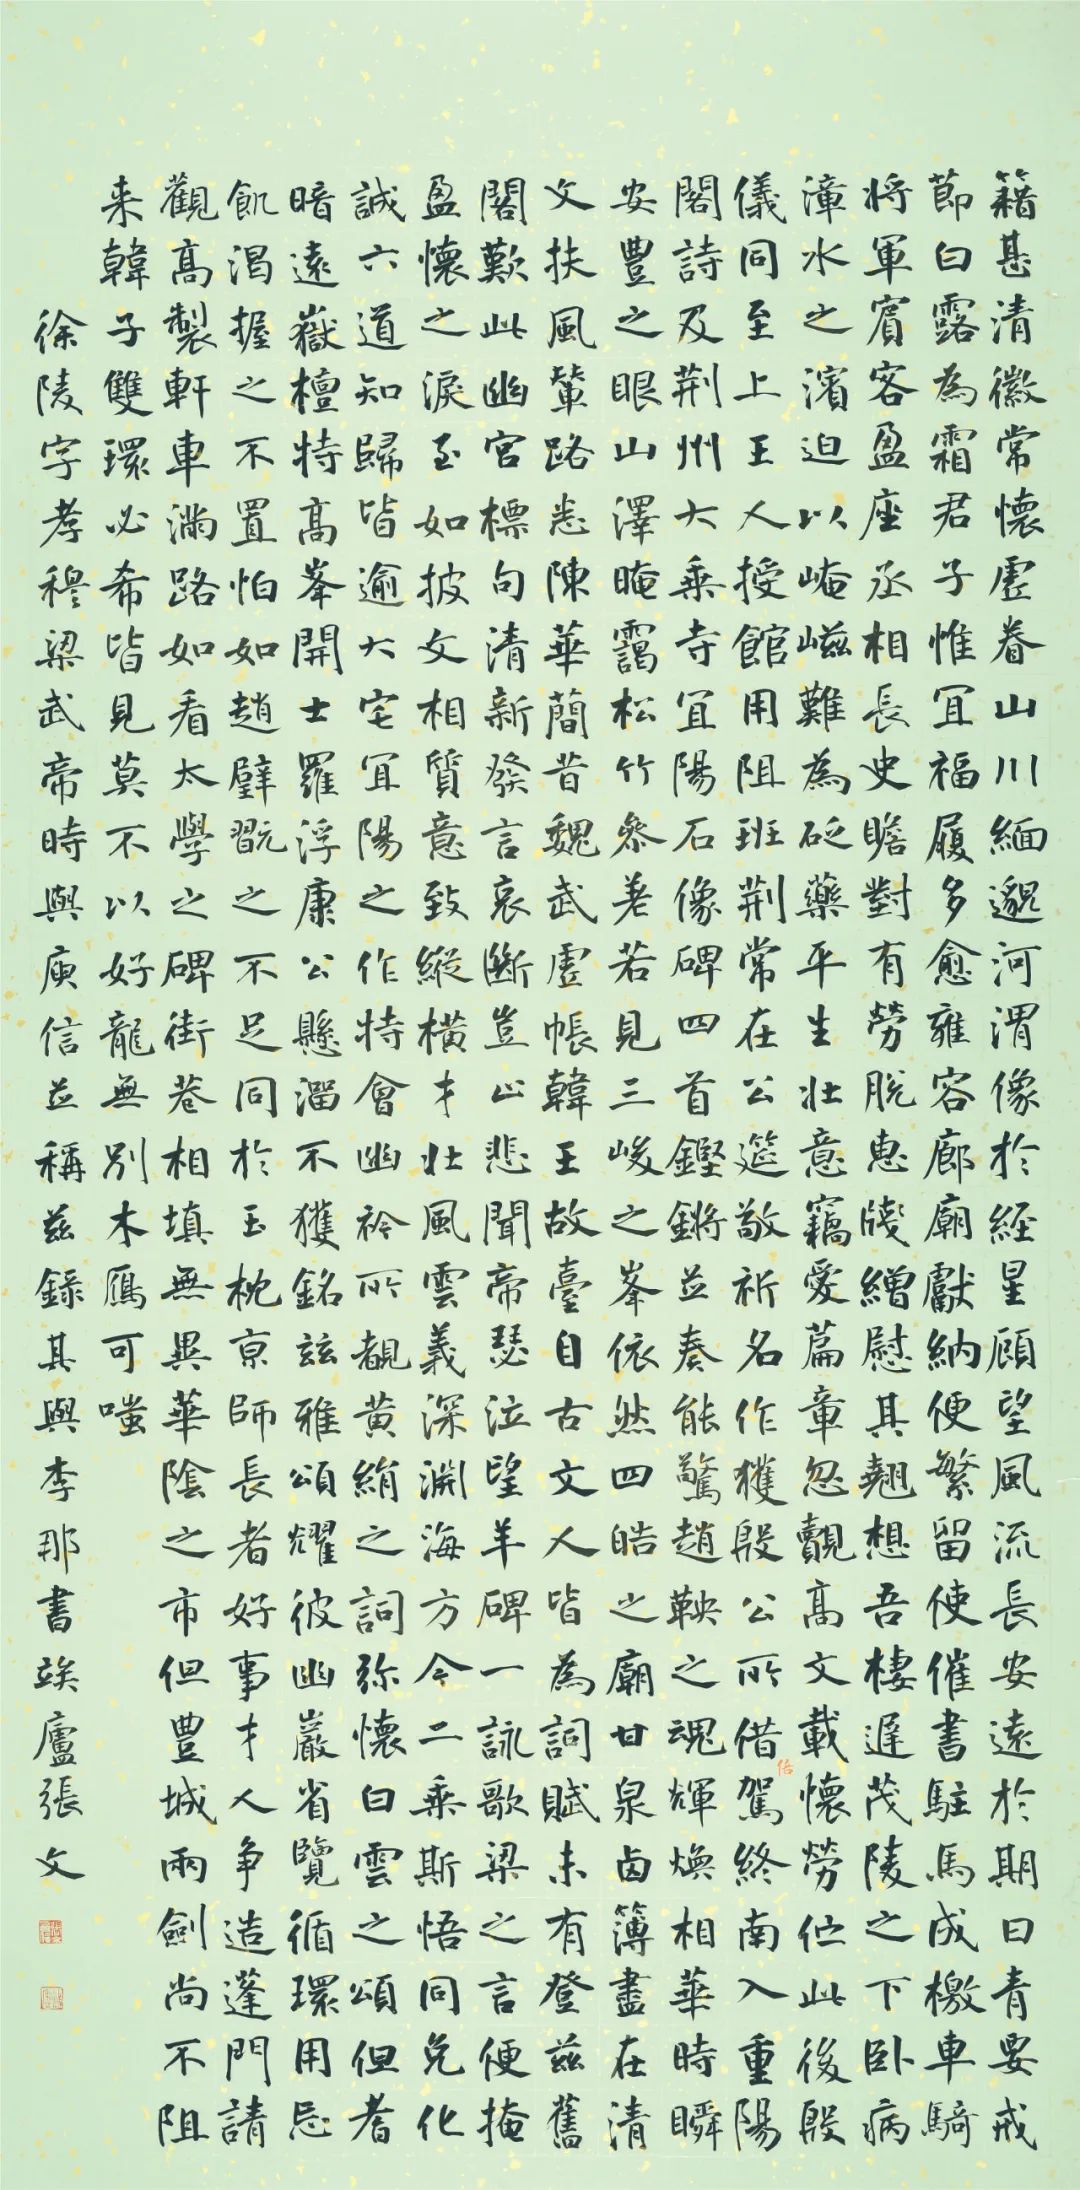 籍甚清徽常懷虛眷山川緬邈河渭像於經星顧望風流長安遠於期日青要戒
節白露為霜君子惟宜福履多愈雍容廊廟獻納便繁留使催書駐馬成檄車騎
將軍賓客盈座丞相長史瞻對有勞脫惠箋繒慰其翹想吾棲遲茂陵之下卧病
漳水之濱迫以崦嵫難為砭藥平生壯意竊愛篇章忽覿高文載懷勞伫此後殷
儀同至上王人授館用阻班荊常在公筵敬祈名作獲殷公所借駕終南入重陽
閣詩及荊州大乘寺宜陽石像碑四首鏗鏘並奏能驚趙鞅之魂輝煥相華時瞬
安豐之眼山澤晻靄松竹參差若見三峻之峯依然四皓之廟甘泉鹵簿盡在清
文扶風輦路悉陳華簡昔魏武虛帳韓王故臺自古文人皆為詞賦未有登茲舊
閣歎此幽宮標句清新發言哀斷豈止悲聞帝瑟泣望羊碑一詠歌梁之言便掩
盈懷之淚至如披文相質意致縱橫才壯風雲義深淵海方今二乘斯悟同免化
誠六道知歸皆逾大宅宜陽之作特會幽衿所覩黃絹之詞弥懷白雲之頌但耆
暗遠嶽檀特高峯開士羅浮康公懸溜不獲銘茲雅頌耀彼幽巖省覽循環用忘
飢渴握之不置怕如趙璧翫之不足同於玉枕京師長者好事才人争造蓬門請
觀高製軒車滿路如看太學之碑街巷相填無異華陰之市但豐城兩劍尚不阻
来韓子雙環必希皆見莫不以好龍無別木鴈可嗤
徐陵字孝穆梁武帝時與庾信並稱茲錄其與李那書竢廬張文
倍